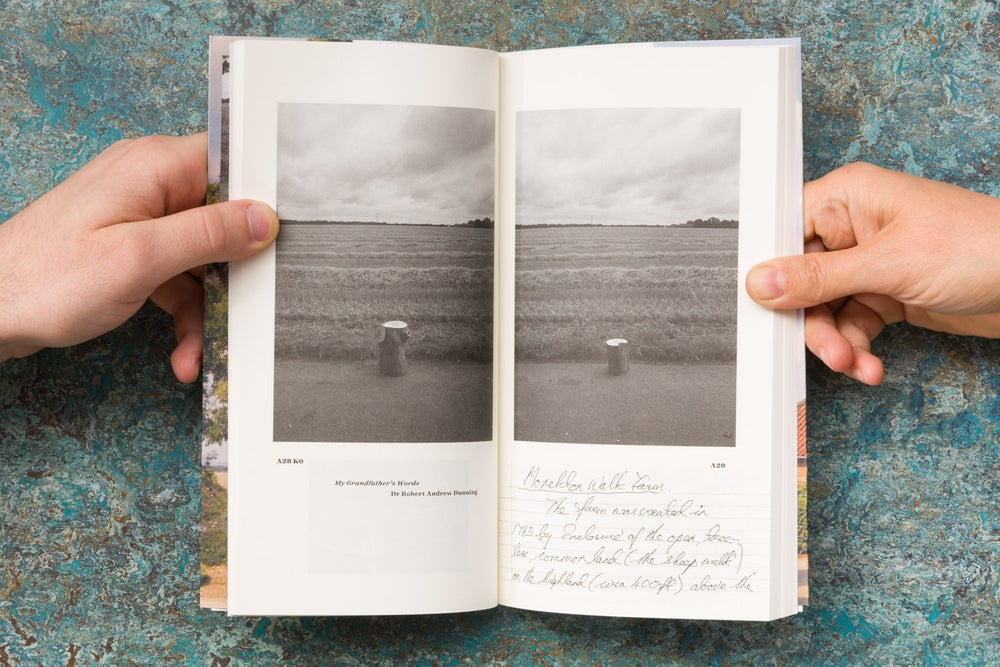 A28 K0
My Grandfather's Words
Dr Robert Andrew Dunning
A29
Monckton Walk Farm.
The farm was created in
1785, by 'Enclosure' of the open, tree-
less, common land (the sheep walk)
on the highland (circa 400ft) above the